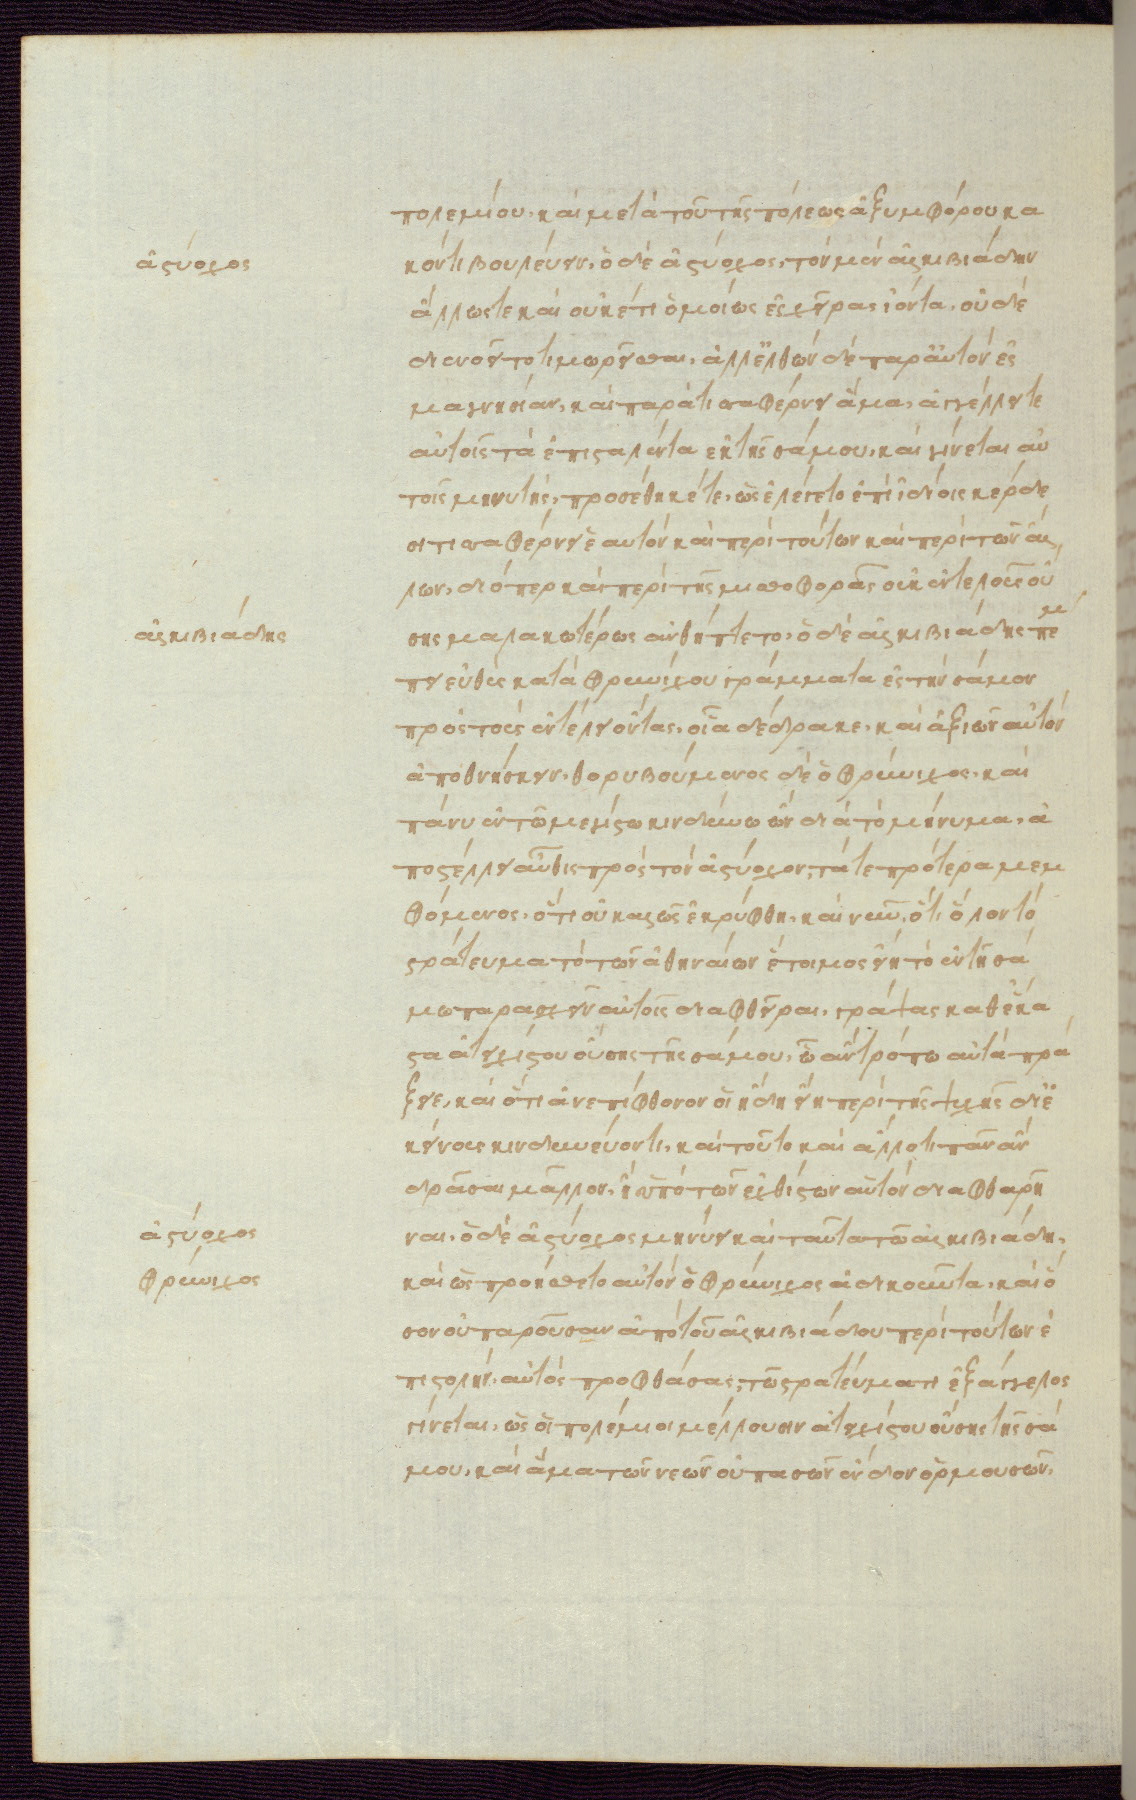 πολεμίου· καὶ μετὰ τοῦ τῆς πόλεως ἀξυμφόρου κα
ἀστύοχος
κόν τι βουλεύειν, ὁ δὲ ἀστύοχος, τὸν μὲν ἀλκιβιάδην
ἄλλως τε καὶ οὐκέτι ὁμοίως ἐς χεῖρας ἰόντα, οὐδὲ
διενοεῖτο τιμωρεῖσθαι, ἀλλ' ἐλθὼν δὲ παρ' αὐτὸν ἐς
μαγνησίαν, καὶ παρὰ τισσαφέρνην ἅμα, ἀγγέλλει τε
αὐτοῖς τὰ ἐπισταλέντα ἐκ τῆς σάμου, καὶ γίνεται αὐ
τοῖς μηνυτής, προσέθηκέ τε, ὡς ἐλέγετο ἐπὶ ἰδίοις κέρδε
σι τισσαφέρνει ἑαυτὸν καὶ περὶ τούτων καὶ περὶ τῶν ἄλ
λων, διόπερ καὶ περὶ τῆς μισθοφορᾶς οὐκ ἐντελοῦς οὔ
ἀλκιβιάδης
σης μαλακωτέρως ἀνθήπτετο, ὁ δὲ ἀλκιβιάδης πέμ
πει εὐθὺς κατὰ φρυνίχου γράμματα ἐς τὴν σάμον
πρὸς τοὺς ἐν τέλει ὄντας, οἷα δέδρακε, καὶ ἀξιῶν αὐτὸν
ἀποθνήσκειν, θορυβούμενος δὲ ὁ φρύνιχος, καὶ
πάνυ ἐν τῷ μεγίστω κινδύνω ὢν διὰ τὸ μήνυμα, ἀ
ποστέλλει αὖθις πρὸς τὸν ἀστύοχον, τά τε πρότερα μεμ
φόμενος, ὅτι οὐ καλῶς ἐκρύφθη, καὶ νῦν, ὅτι ὅλον τὸ
στράτευμα τὸ τῶν ἀθηναίων ἕτοιμος εἴη τὸ ἐν τῆ σά
μω παρασχεῖν αὐτοῖς διαφθεῖραι, γράψας καθ' ἕκα
στα ἀτειχίστου οὔσης τῆς σάμου, ᾧ ἂν τρόπω αὐτὰ πρά
ξειε, καὶ ὅτι ἀνεπίφθονον οἷ ἤδη εἴη περὶ τῆς ψυχῆς δι' ἐ
κείνους κινδυνεύοντι, καὶ τοῦτο καὶ ἄλλο τι πᾶν ἂν
δρᾶσαι μᾶλλον, ἢ ὑπὸ τῶν ἐχθίστων αὐτὸν διαφθαρῆ
ἀστύοχος
ναι, ὁ δὲ ἀστύοχος μηνύει καὶ ταῦτα τῶ ἀλκιβιάδη,
φρύνιχος
καὶ ὡς προήσθετο αὐτὸν ὁ φρύνιχος ἀδικοῦντα, καὶ ὅ
σον οὐ παροῦσαν ἀπὸ τοῦ ἀλκιβιάδου περὶ τούτων ἐ
πιστολήν, αὐτὸς προφθάσας, τῶ στρατεύματι ἐξάγγελος
γίνεται, ὡς οἱ πολέμιοι μέλλουσιν ἀτειχίστου οὔσης τῆς σά
μου, καὶ ἅμα τῶν νεῶν οὐ πασῶν ἔνδον ὁρμουσῶν,